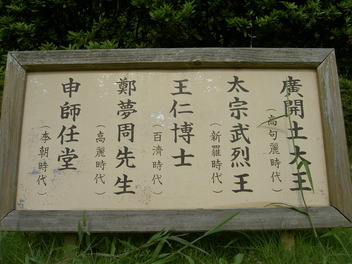 廣開土大王
（高句麗時代）
太宗武烈王
（新羅時代）
王仁博士
（百済時代）
鄭夢周先生
（高麗時代）
申師任堂
（李朝時代）